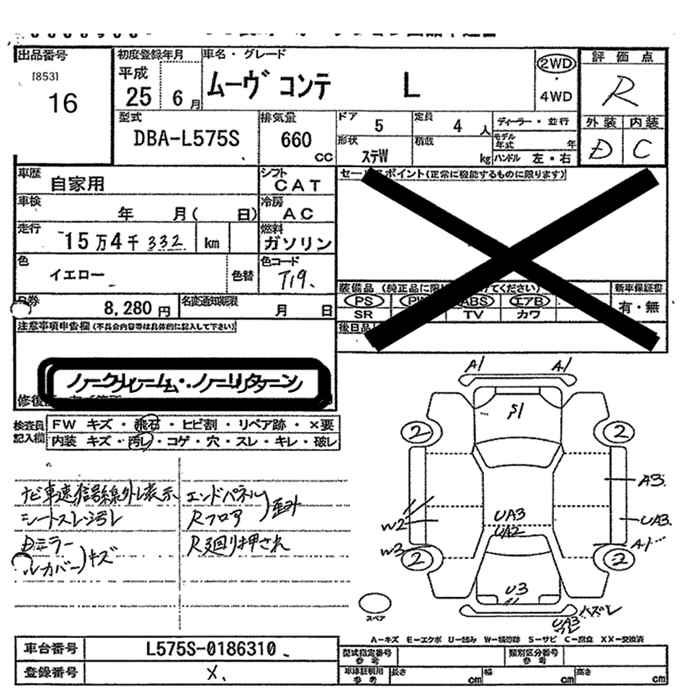 出品番号
[853]
16
初度登録年月
平成
25 6 月
車名・グレード
ムーヴ コンテ L
2WD
・
4WD
評価点
R
外装 内装
D C
型式
DBA-L575S
排気量
660
CC
ドア 5
定員 4 人
形状
ステW
積載
kg
ディーラー・並行
モデル年式 年
ハンドル 左・右
車歴
自家用
シフト
CAT
車検
年 月( 日)
冷房
AC
走行
15万4千332 km
燃料
ガソリン
色
イエロー
色替
色コード
T19
R券
8,280円
名変通知期限
月 日
セールスポイント(正常に機能するものに限ります)
装備品
PS
ABS
エアB
SR
TV
カワ
新車保証書
有・無
後日品
注意事項申告欄(不具合内容等は具体的に記入して下さい)
ノークレーム・ノーリターン
検査員
記入欄
FW キズ・飛石・ヒビ割・リペア跡・×要
内装 キズ・汚レ・コゲ・穴・スレ・キレ・破レ
ナビ車速信号線外し表示
シートスレ汚レ
Dミラー
ルカバー)キズ
エンドパネル
Rフロア)歪み
R廻り押され
A1 A1
S1
2 2
A3
UA3
UA2
W2
UA3
W3
A1
2 2
U3
ハズレ
UA3
スペア
A-キズ E-エクボ U-凹み W-補修跡 S-サビ C-腐食 XX-交換済
車台番号
L575S-0186310
登録番号
X
型式指定番号
参考
類別区分番号
参考
車庫証明用
参考
長さ cm
幅 cm
高さ cm